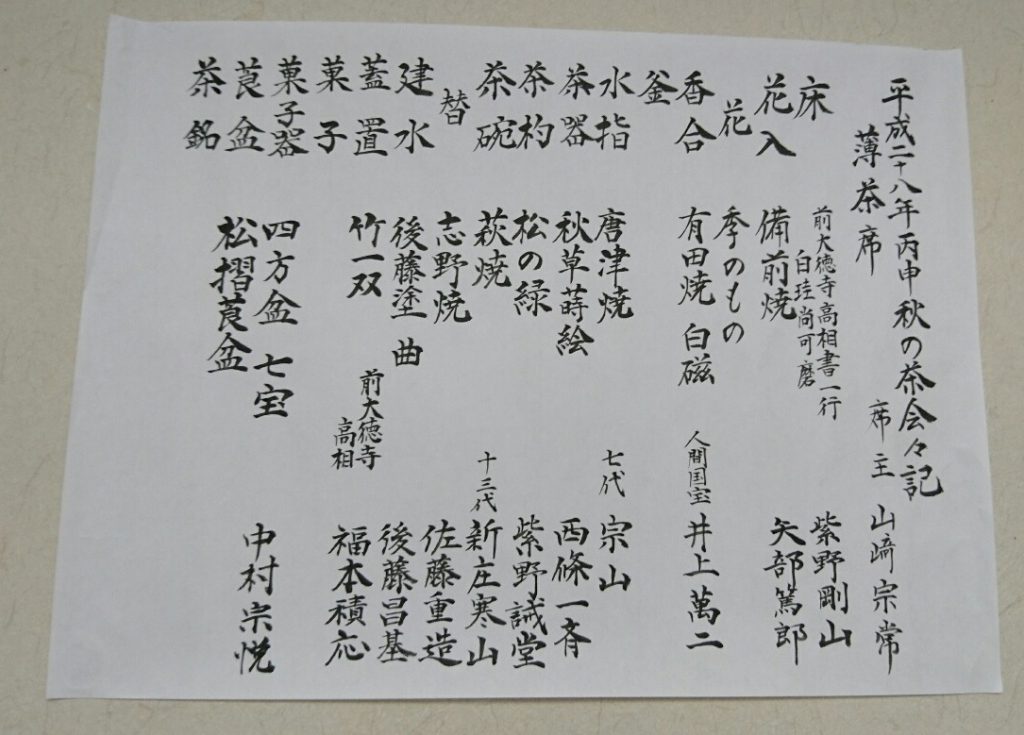 平成二十八年丙申秋の茶会々記
薄茶席 席主 山﨑宗常
床 前大徳寺高相書一行 紫野剛山
白珪尚可磨
花入 備前焼 矢部篤郎
花 季のもの
香合 有田焼 白磁 人間国宝 井上萬二
釜
水指 唐津焼 七代 宗山
茶器 秋草蒔絵 西條一斉
茶杓 松の緑 紫野誡堂
茶碗 萩焼 十三代 新庄寒山
替 志野焼 佐藤重造
建水 後藤塗 曲 後藤昌基
蓋置 竹一双 前大徳寺高相 福本積応
菓子
菓子器 四方盆 七宝
莨盆 松摺莨盆 中村宗悦
茶銘